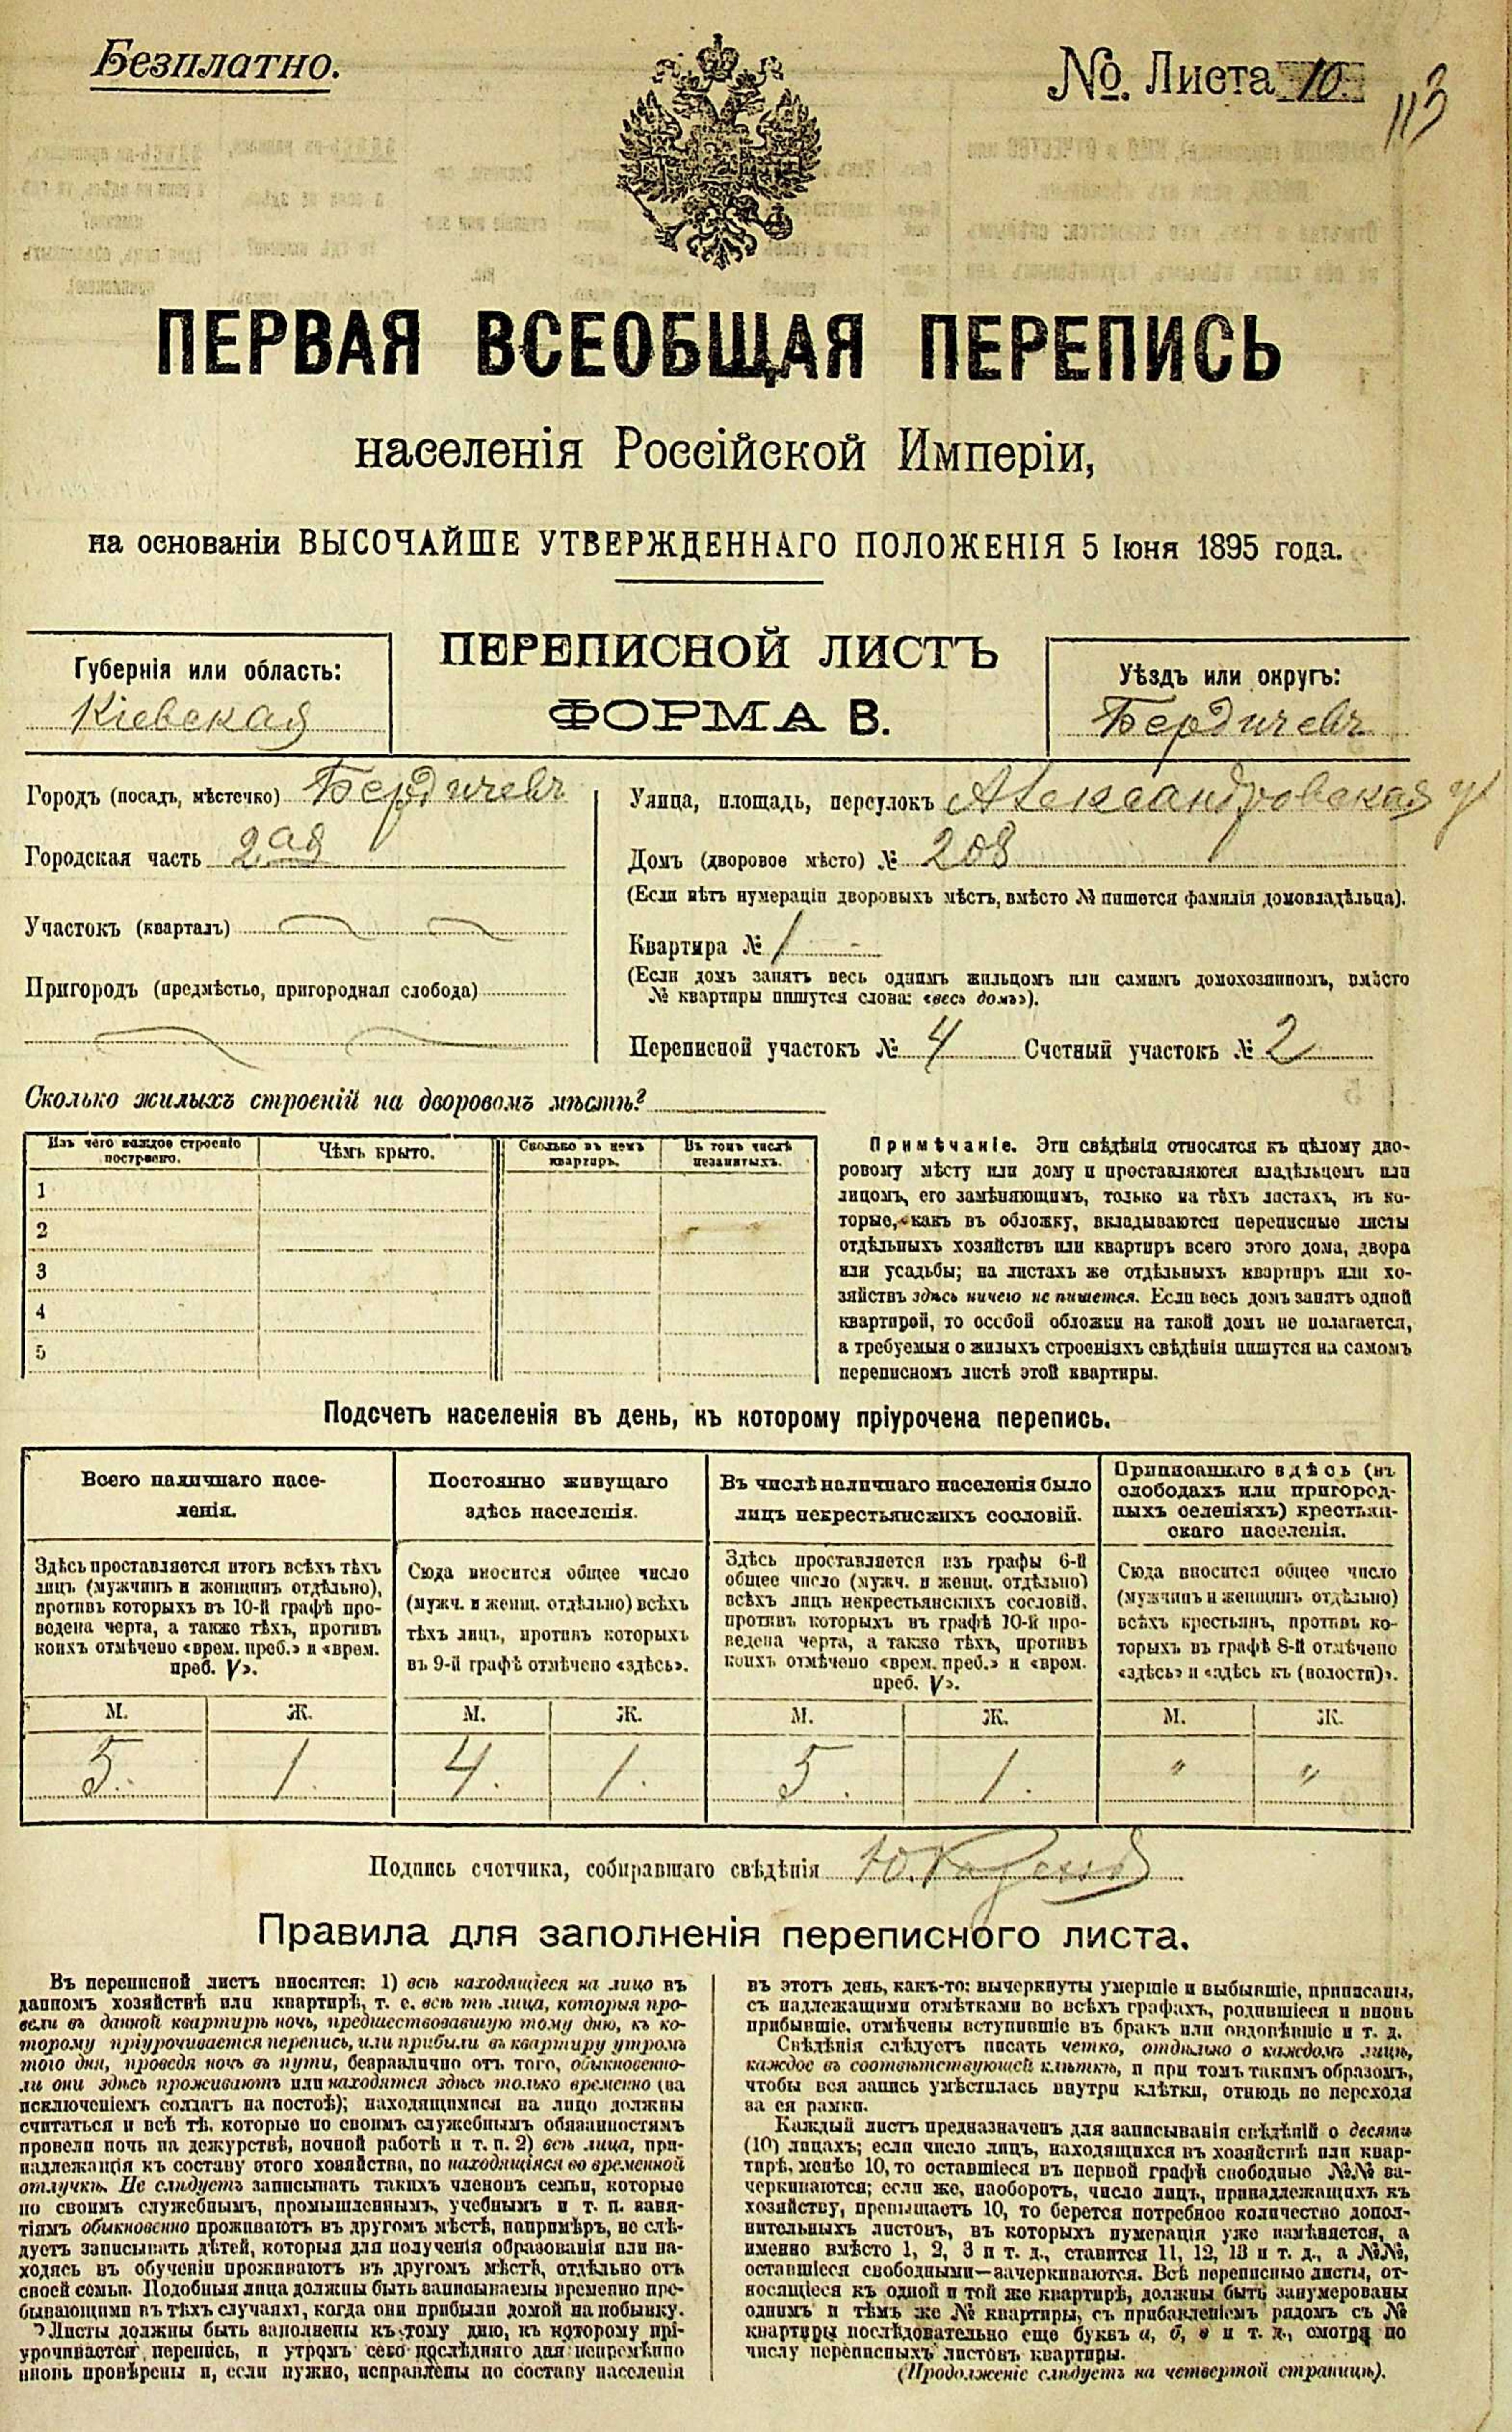 Безплатно.
№. Листа 10.
113
ПЕРВАЯ ВСЕОБЩАЯ ПЕРЕПИСЬ
населенія Россійской Имперіи,
на основаніи ВЫСОЧАЙШЕ УТВЕРЖДЕННАГО ПОЛОЖЕНІЯ 5 Іюня 1895 года.
Губернія или область:
Кіевская
ПЕРЕПИСНОЙ ЛИСТЪ
ФОРМА В.
Уѣздъ или округъ:
Бердичевъ
Городъ (посадъ, мѣстечко) Бердичевъ
Городская часть 2ая
Участокъ (кварталъ)
Пригородъ (предмѣстье, пригородная слобода)
Улица, площадь, переулокъ Александровская у
Домъ (дворовое мѣсто) № 208
(Если нѣтъ нумераціи дворовыхъ мѣстъ, вмѣсто № пишется фамилія домовладѣльца).
Квартира № 1
(Если домъ занятъ весь однимъ жильцомъ или самимъ домохозяиномъ, вмѣсто
№ квартиры пишутся слова: «весь домъ»).
Переписной участокъ № 4 Счетный участокъ № 2
Сколько жилыхъ строеній на дворовомъ мѣстѣ?
Изъ чего каждое строеніе
построено.
Чѣмъ крыто.
Сколько въ немъ
квартиръ.
Въ томъ числѣ
незанятыхъ.
1
2
3
4
5
Примѣчаніе. Эти свѣдѣнія относятся къ цѣлому дво-
ровому мѣсту или дому и проставляются владѣльцемъ или
лицомъ, его замѣняющимъ, только на тѣхъ листахъ, въ ко-
торые, какъ въ обложку, вкладываются переписные листы
отдѣльныхъ хозяйствъ или квартиръ всего этого дома, двора
или усадьбы; на листахъ же отдѣльныхъ квартиръ или хо-
зяйствъ здѣсь ничего не пишется. Если весь домъ занятъ одной
квартирой, то особой обложки на такой домъ не полагается,
а требуемыя о жилыхъ строеніяхъ свѣдѣнія пишутся на самомъ
переписномъ листѣ этой квартиры.
Подсчетъ населенія въ день, къ которому пріурочена перепись.
Всего наличнаго насе-
ленія.
Здѣсь проставляется итогъ всѣхъ тѣхъ
лицъ (мужчинъ и женщинъ отдѣльно),
противъ которыхъ въ 10-й графѣ про-
ведена черта, а также тѣхъ, противъ
коихъ отмѣчено «врем. преб.» и «врем.
преб. V».
М. Ж.
5. 1.
Постоянно живущаго
здѣсь населенія.
Сюда вносится общее число
(мужч. и женщ. отдѣльно) всѣхъ
тѣхъ лицъ, противъ которыхъ
въ 9-й графѣ отмѣчено «здѣсь».
М. Ж.
4. 1.
Въ числѣ наличнаго населенія было
лицъ некрестьянскихъ сословій.
Здѣсь проставляется изъ графы 6-й
общее число (мужч. и женщ. отдѣльно)
всѣхъ лицъ некрестьянскихъ сословій,
противъ которыхъ въ графѣ 10-й про-
ведена черта, а также тѣхъ, противъ
коихъ отмѣчено «врем. преб.» и «врем.
преб. V».
М. Ж.
5. 1.
Приписаннаго здѣсь (въ
слободахъ или пригород-
ныхъ селеніяхъ) крестьян-
скаго населенія.
Сюда вносится общее число
(мужчинъ и женщинъ отдѣльно)
всѣхъ крестьянъ, противъ ко-
торыхъ въ графѣ 8-й отмѣчено
«здѣсь» и «здѣсь къ (волости)».
М. Ж.
" "
Подпись счетчика, собиравшаго свѣдѣнія
Правила для заполненія переписного листа.
Въ переписной листъ вносятся: 1) всѣ находящіеся на лицо въ
данномъ хозяйствѣ или квартирѣ, т. е. всѣ тѣ лица, которыя про-
вели въ данной квартирѣ ночь, предшествовавшую тому дню, къ ко-
торому пріурочивается перепись, или прибыли въ квартиру утромъ
того дня, проведя ночь въ пути, безразлично отъ того, обыкновенно-
ли они здѣсь проживаютъ или находятся здѣсь только временно (за
исключеніемъ солдатъ на постоѣ); находящимися на лицо должны
считаться и всѣ тѣ, которые по своимъ служебнымъ обязанностямъ
провели ночь на дежурствѣ, ночной работѣ и т. п. 2) всѣ лица, при-
надлежащія къ составу этого хозяйства, но находящіяся во временной
отлучкѣ. Не слѣдуетъ записывать такихъ членовъ семьи, которые
по своимъ служебнымъ, промышленнымъ, учебнымъ и т. п. заня-
тіямъ обыкновенно проживаютъ въ другомъ мѣстѣ, напримѣръ, не слѣ-
дуетъ записывать дѣтей, которыя для полученія образованія или на-
ходясь въ обученіи проживаютъ въ другомъ мѣстѣ, отдѣльно отъ
своей семьи. Подобныя лица должны быть записываемы временно пре-
бывающими въ тѣхъ случаяхъ, когда они прибыли домой на побывку.
Листы должны быть заполнены къ тому дню, къ которому прі-
урочивается перепись, и утромъ сего послѣдняго дня непремѣнно
вновь провѣрены и, если нужно, исправлены по составу населенія
въ этотъ день, какъ-то: вычеркнуты умершіе и выбывшіе, приписаны,
съ надлежащими отмѣтками во всѣхъ графахъ, родившіеся и вновь
прибывшіе, отмѣчены вступившіе въ бракъ или овдовѣвшіе и т. д.
Свѣдѣнія слѣдуетъ писать четко, отдѣльно о каждомъ лицѣ,
каждое въ соотвѣтствующей клѣткѣ, и при томъ такимъ образомъ,
чтобы вся запись умѣстилась внутри клѣтки, отнюдь не переходя
за ея рамки.
Каждый листъ предназначенъ для записыванія свѣдѣній о десяти
(10) лицахъ; если число лицъ, находящихся въ хозяйствѣ или квар-
тирѣ, менѣе 10, то оставшіеся въ первой графѣ свободные №№ за-
черкиваются; если же, наоборотъ, число лицъ, принадлежащихъ къ
хозяйству, превышаетъ 10, то берется потребное количество допол-
нительныхъ листовъ, въ которыхъ нумерація уже измѣняется, а
именно вмѣсто 1, 2, 3 и т. д., ставится 11, 12, 13 и т. д., а №№,
оставшіеся свободными—зачеркиваются. Всѣ переписные листы, от-
носящіеся къ одной и той же квартирѣ, должны быть занумерованы
однимъ и тѣмъ же № квартиры, съ прибавленіемъ рядомъ съ №
квартиры послѣдовательно еще буквъ а, б, в и т. д., смотря по
числу переписныхъ листовъ квартиры.
(Продолженіе слѣдуетъ на четвертой страницѣ).